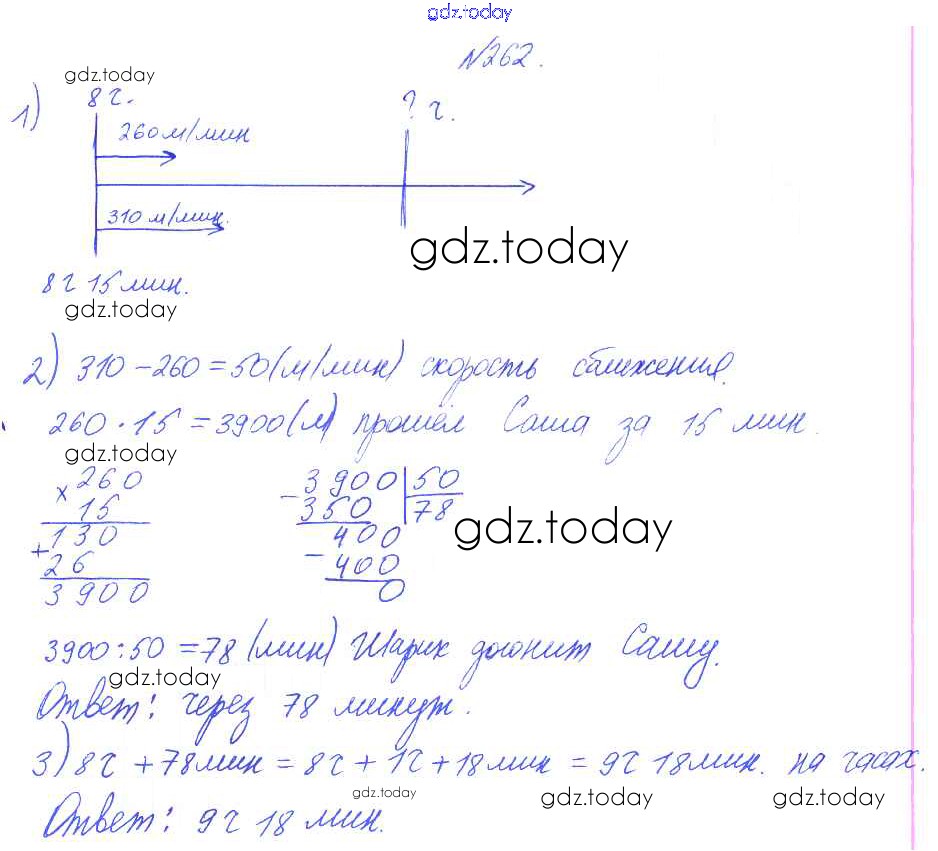 gdz.today
№262.
gdz.today
1) 8 ч. ? ч.
260 м/мин
310 м/мин.
gdz.today
8 ч 15 мин.
gdz.today
2) 310 - 260 = 50 (м/мин) скорость сближения.
260 · 15 = 3900 (м) прошёл Саша за 15 мин.
gdz.today
× 260
15
130
+ 26
3900
- 3900 | 50
350 | 78
400
- 400
0
gdz.today
3900 : 50 = 78 (мин) Шарик догонит Сашу.
gdz.today
Ответ: через 78 минут.
3) 8 ч + 78 мин = 8 ч + 1 ч + 18 мин = 9 ч 18 мин. на часах.
gdz.today gdz.today gdz.today
Ответ: 9 ч 18 мин.